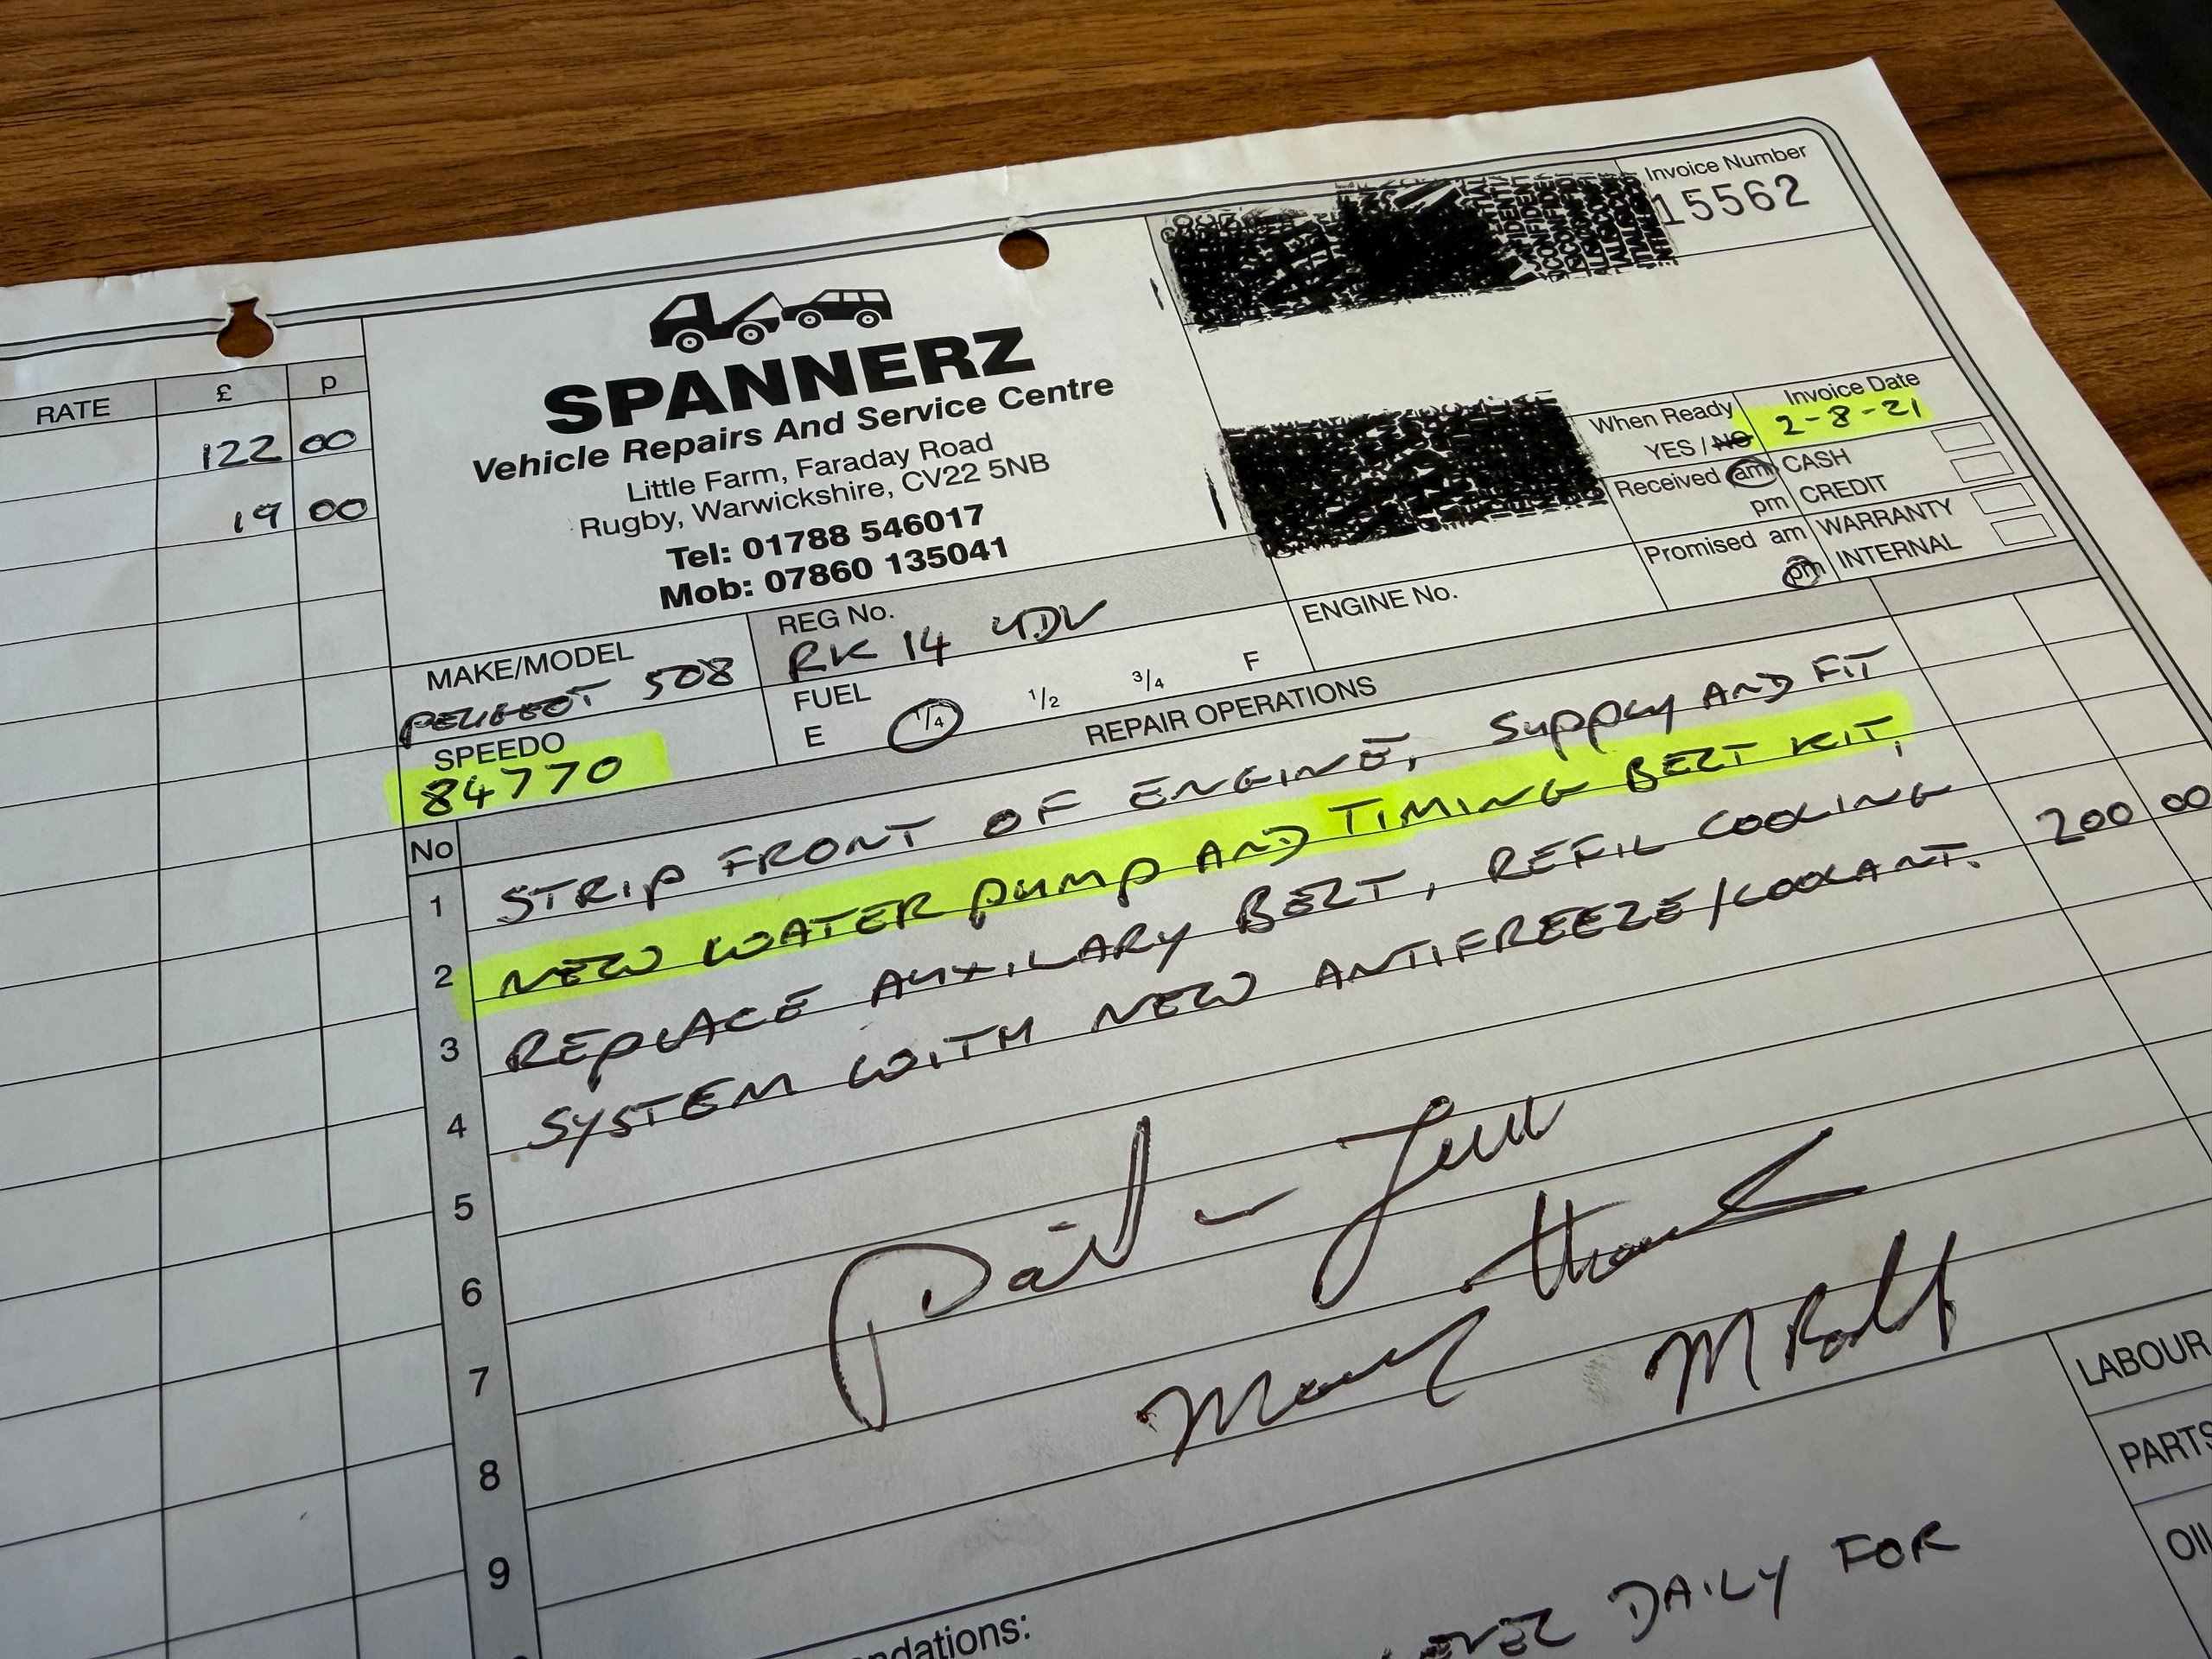 RATE £ p
122 00
19 00
SPANNERZ
Vehicle Repairs And Service Centre
Little Farm, Faraday Road
Rugby, Warwickshire, CV22 5NB
Tel: 01788 546017
Mob: 07860 135041
Invoice Number
15562
When Ready
YES / NO
Invoice Date
2-8-21
Received am
pm
CASH
CREDIT
Promised am
pm
WARRANTY
INTERNAL
MAKE/MODEL
PEUGEOT 508
REG No.
RK 14 UDV
ENGINE No.
SPEEDO
84770
FUEL
E 1/4 1/2 3/4 F
No
REPAIR OPERATIONS
1 STRIP FRONT OF ENGINE, SUPPLY AND FIT
2 NEW WATER PUMP AND TIMING BELT KIT,
3 REPLACE AUXILARY BELT, REFIL COOLING
4 SYSTEM WITH NEW ANTIFREEZE/COOLANT. 200 00
5
6 Paid - Full
7 Many thanks
8 M
9
LABOUR
PARTS
OIL
ndations:
LEVEL DAILY FOR